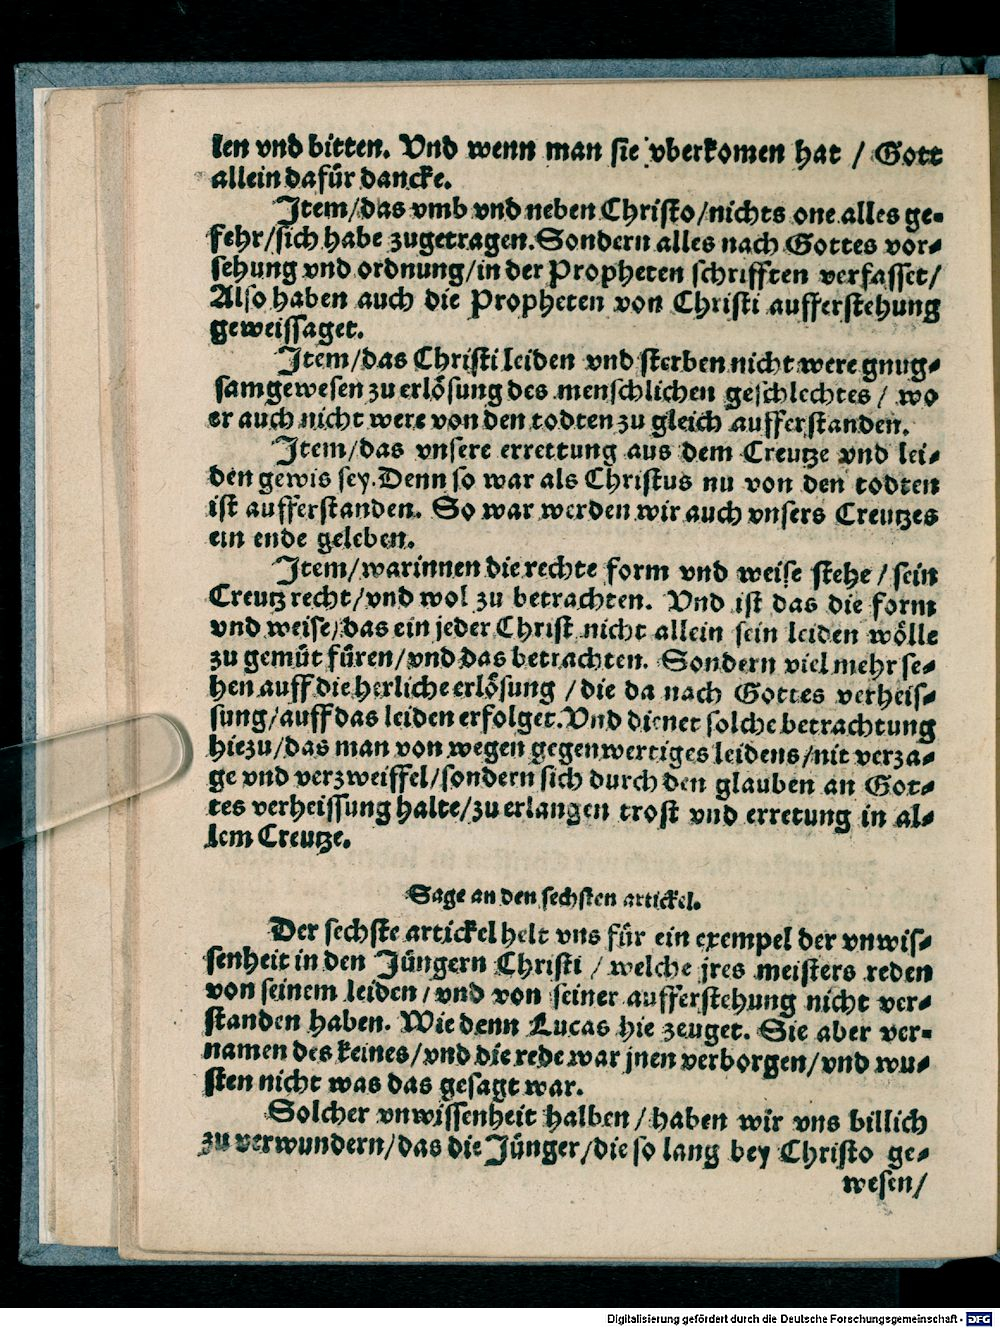 len vnd bitten. Vnd wenn man sie vberkomen hat / Gott
allein dafür dancke.
Item/das vmb vnd neben Christo/nichts one alles ge-
fehr/sich habe zugetragen. Sondern alles nach Gottes vor-
sehung vnd ordnung/in der Propheten schrifften verfasset/
Also haben auch die Propheten von Christi aufferstehung
geweissaget.
Item/das Christi leiden vnd sterben nicht were gnug-
sam gewesen zu erlösung des menschlichen geschlechtes / wo
er auch nicht were von den todten zu gleich aufferstanden.
Item/das vnsere errettung aus dem Creutze vnd lei-
den gewis sey. Denn so war als Christus nu von den todten
ist aufferstanden. So war werden wir auch vnsers Creutzes
ein ende geleben.
Item/warinnen die rechte form vnd weise stehe / sein
Creutz recht/vnd wol zu betrachten. Vnd ist das die form
vnd weise/das ein jeder Christ nicht allein sein leiden wölle
zu gemüt füren/vnd das betrachten. Sondern viel mehr se-
hen auff die herliche erlösung / die da nach Gottes verheis-
sung/auff das leiden erfolget. Vnd dienet solche betrachtung
hiezu/das man von wegen gegenwertiges leidens/nit verza-
ge vnd verzweiffel/sondern sich durch den glauben an Got-
tes verheissung halte/zu erlangen trost vnd erretung in al-
lem Creutze.
Sage an den sechsten artickel.
Der sechste artickel helt vns für ein exempel der vnwis-
senheit in den Jüngern Christi / welche jres meisters reden
von seinem leiden / vnd von seiner aufferstehung nicht ver-
standen haben. Wie denn Lucas hie zeuget. Sie aber ver-
namen des keines/vnd die rede war jnen verborgen/vnd wu-
sten nicht was das gesagt war.
Solcher vnwissenheit halben / haben wir vns billich
zu verwundern/das die Jünger/die so lang bey Christo ge-
wesen/
Digitalisierung gefördert durch die Deutsche Forschungsgemeinschaft - DFG